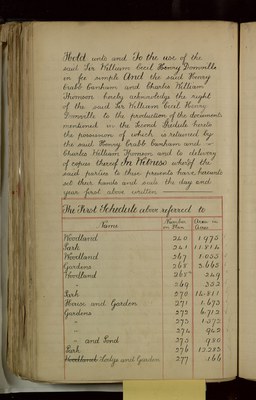 Hold unto and To the use of the
said Sir William Cecil Henry Domville
in fee simple And the said Henry
Crabb Canham and Charles William
Thomson hereby acknowledge the right
of the said Sir William Cecil Henry
Domville to the production of the documents
mentioned in the Second Schedule hereto
the possession of which is retained by
the said Henry Crabb Canham and
Charles William Thomson and to delivery
of copies thereof In Witness whereof the
said parties to these presents have hereunto
set their hands and seals the day and
year first above written
The First Schedule above referred to
Name Number on Plan Area in Acres
Woodland 240 1·975
Park 241 11·814
Woodland 267 1·055
Gardens 268 3·665
Woodland 268a ·249
" 269 ·552
Park 270 14·811
House and Garden 271 1·673
Gardens 272 6·712
" 273 1·575
" 274 ·945
" and Pond 275 ·980
Park 276 12·285
Woodland Lodge and Garden 277 ·166